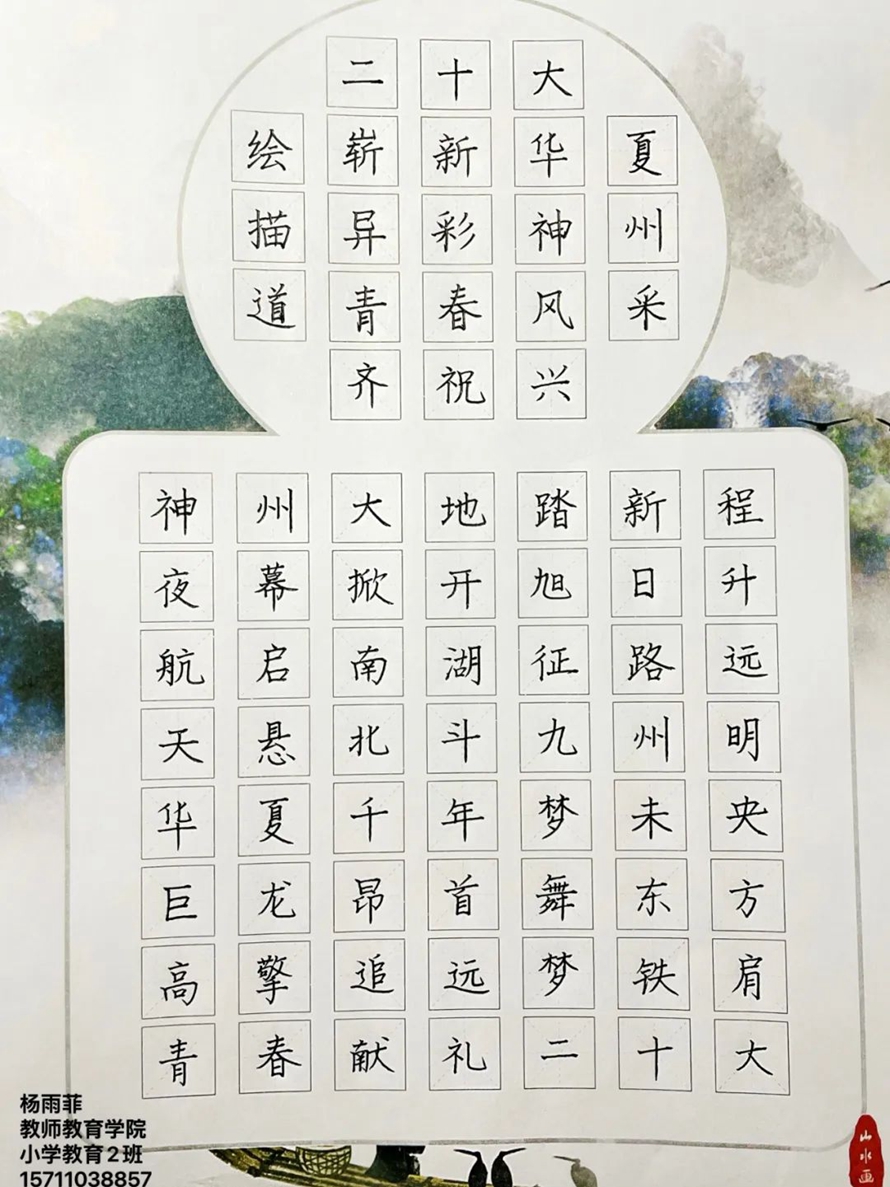 二十大
绘崭新华夏
描异彩神州
道青春风采
齐祝兴
神州大地踏新程
夜幕掀开旭日升
航启南湖征路远
天悬北斗九州明
华夏千年梦未央
巨龙昂首舞东方
高擎追远梦铁肩
青春献礼二十大
杨雨菲
教师教育学院
小学教育2班
15711038857
山水画